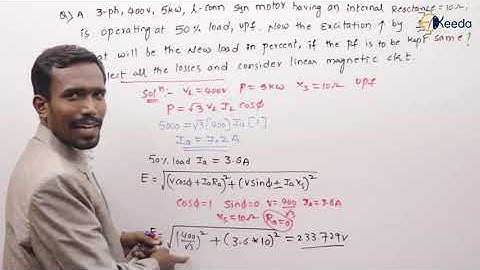 Q) A 3-ph, 400V, 5kW, λ-conn syn motor having an internal Reactance = 10Ω,
is operating at 50% load, upf. Now the Excitation ↑ by
at will be the New load in percent, if the Pf is to be kept same?
lect all the losses and consider linear magnetic ckt.
Keeda
Solⁿ:- VL = 400V P = 5kW Xs = 10Ω upf
P = √3 VL IL cosϕ
5000 = √3 (400) Ia [1]
Ia = 7.2 A
50% load Ia = 3.6A
E = √(Vcosϕ + IaRa)² + (Vsinϕ + IaXs)²
cosϕ = 1 sinϕ = 0 V = 400/√3 Ia = 3.6A
Xs = 10Ω Ra = 0
E = √(400/√3)² + (3.6*10)² = 233.729V